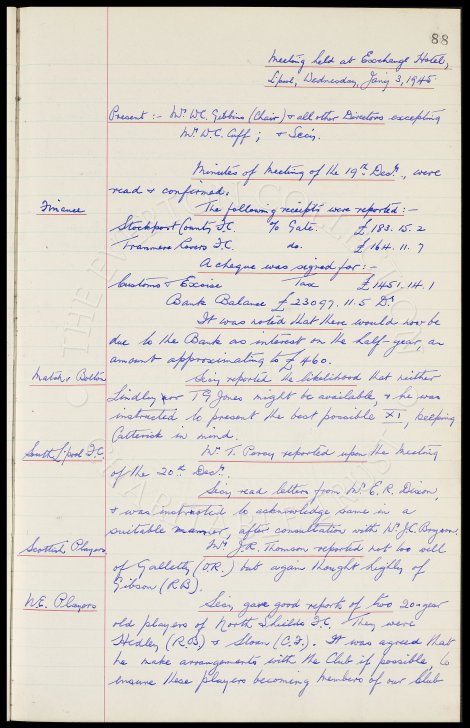 88
Meeting held at Exchange Hotel,
L'pool, Wednesday, Jany 3, 1945
Present :- Mr. W.C. Gibbins (Chair) & all other Directors excepting
Mr. W.C. Cuff ; & Secy.
Minutes of meeting of the 19th Decr., were
read & confirmed.
Finance
The following receipts were reported :-
Stockport County F.C. % Gate. £183. 15. 2
Tranmere Rovers F.C. do. £164. 11. 7
A cheque was signed for :-
Customs & Excise Tax £1451. 14. 1
Bank Balance £23097. 11. 5 Dr.
It was noted that there would now be
due to the Bank as interest on the half-year, an
amount approximating to £460.
Match v Bolton
Secy reported the likelihood that neither
Lindley nor T.G. Jones might be available, & he was
instructed to present the best possible XI, keeping
Catterick in mind.
South L'pool F.C.
Mr. T. Percy reported upon the meeting
of the 20th Decr.
Secy read letters from Mr. E.R. Dixon,
& was instructed to acknowledge same in a
suitable manner, after consultation with Mr J.C. Bryson.
Scottish Players
Mr. J.R. Thomson reported not too well
of Galletly (O.R.) but again thought highly of
Gibson (R.B.)
N.E. Players
Secy gave good reports of two 20-year
old players of North Shields F.C. They were
Hedley (R.B) & Sloan (C.F.). It was agreed that
he make arrangements with the Club if possible, to
ensure these players becoming members of our Club
THE EVERTON COLLECTION
CHARITABLE TRUST